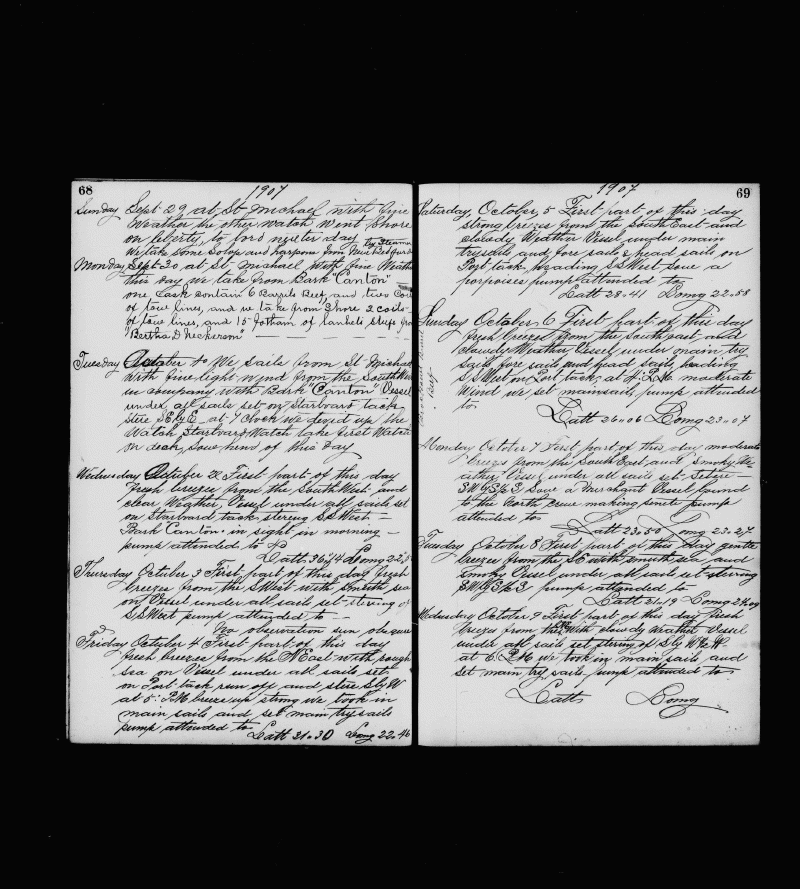 68
1907
Sunday Sept 29 at St Michael with fine
Weather the other watch Went Shore
on liberty, to
We take some and harpons from New Bedford
by Steamer
Monday Sept 30, at St. Michael with fine Weather
this day we take from Bark "Canton"
one Cask Contain 6 Barrels Beef, and two Coils
of tow lines, and we take from Shore 2 coils
of tow lines, and 15 fotham of lankets strips from
"Bertha D Nickerson"
Tuesday October 1 We sails from St Michael
With fine light wind from the
in company with Bark "Canton" Vessel
under all sails set on Starbord tack
stere SE by E at 7 Clock we devid up the
Watch Starbord Watch take first Watch
on deck, Sow hend of this Day
Wednesday October 2 First part of this day
fresh breeze from the South West and
clear Weather, Vessel under all sails set
on Starbord tack stereng SSWest
Bark Canton in sight in morning
pump attended to
Latt 36"14 Long 22"5
Thursday October 3 First part of this day fresh
breeze from the SWest with Smuth sea
on Vessel under all sails set stereng of
SSWest pump attended to
No observation sun obscure
Friday October 4 First part of this day
fresh breeze from the NEast with rough
sea on Vessel under all sails set
on Port tack run off and stere S by W
at 5: P.M. breeze up strong we took in
main sails and set main try sails
pump attended to
Latt 31"30 Long 22"46
69
1907
Saturday, October, 5 First part of this day
strong breeze from the South East and
clowdy Weather Vessel under main
trysails and fore sails & head sails on
Port tack heading SSWest sow a
porpoises pump attended to
Latt 28"41 Long 22"58
Sunday October, 6 First part of this day
fresh breeze from the South east and
clowdy Weather, Vessel under main try
sails fore sails and head sails heading
SSWest on Port tack, at 4: P.M. moderate
Wind we set mainsails, pump attended
to
Latt 26"06 Long 23"07
Beef
Monday October 7 First part of this day moderate
breeze from the South East and smoky We-
ather Vessel under all sails set
SW by S 1/2 S Sow a Merchant Vessel bound
to the North crew making senet pump
attended to
Latt 23"50 Long 23"27
Tuesday October 8 First part of this day gentle
breeze from the SE with smuth sea and
smoky Vessel under all sails set stereng
SW by S 1/2 S pump attended to
Latt 21"19 Long 24"09
Wednesday October 9 First part of this day Fresh
breeze from the With clowdy weather Vessel
under all sails set stereng of S by W 1/2 W
at 6 P.M. we took in main sails and
set main try sails pump attended to
Latt Long